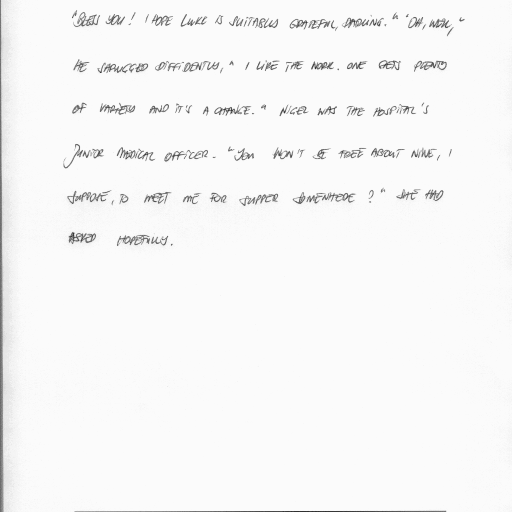 "BLESS YOU! I HOPE LUKE IS SUITABLY GRATEFUL, DARLING." "OH, WELL,"
HE SHRUGGED DIFFIDENTLY, "I LIKE THE WORK. ONE GETS PLENTY
OF VARIETY AND IT'S A CHANGE." NIGEL WAS THE HOSPITAL'S
JUNIOR MEDICAL OFFICER. "YOU WON'T BE FREE ABOUT NINE, I
SUPPOSE, TO MEET ME FOR SUPPER SOMEWHERE?" SHE HAD
ASKED HOPEFULLY.